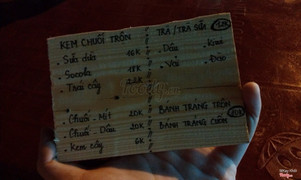 KEM CHUỐI TRỘN
- Sữa chua 16K
- Socola 18K
- Trái cây
- Chuối - Mít 20K
- Chuối - Dâu 20K
- Kem cây 6K
TRÀ / TRÀ SỮA
- Dâu - Kiwi
- Vải - Đào
BÁNH TRÁNG TRỘN
BÁNH TRÁNG CUỐN 20K